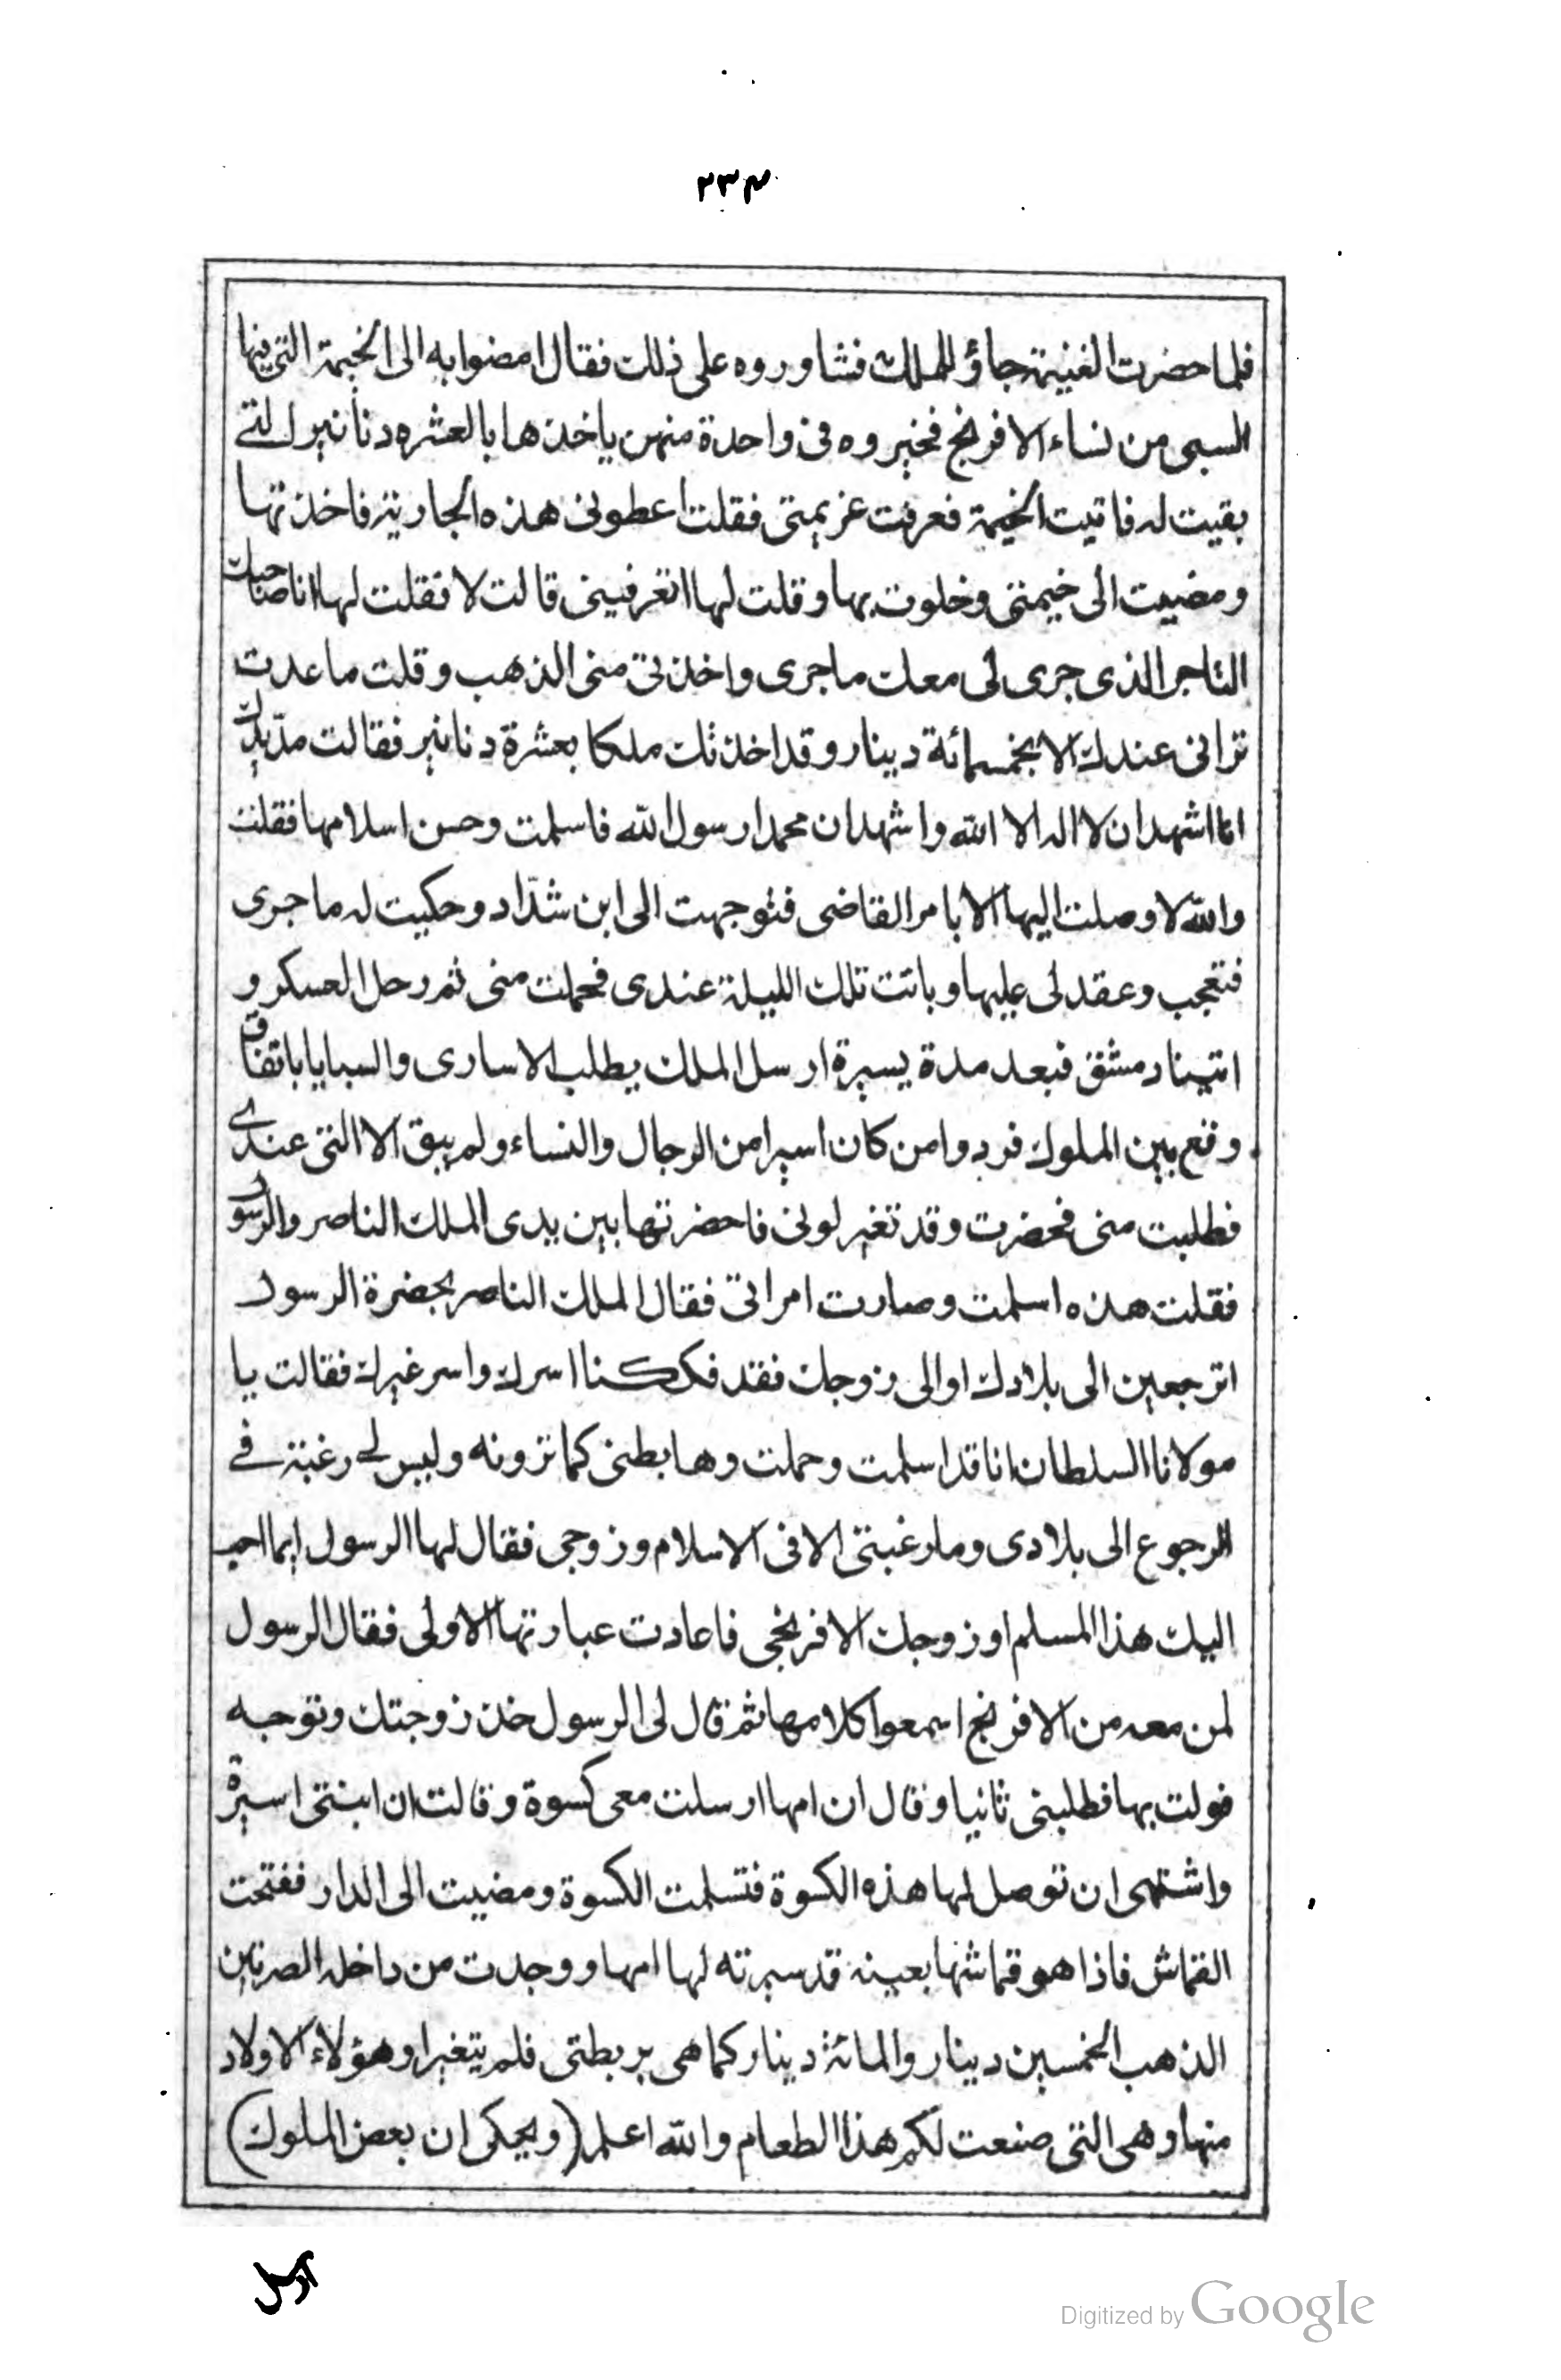 ٢٣٤
فلما حضرت الغنيمة جاؤ للملك فشاوروه على ذلك فقال امضوا به الى الخيمة التى فيها
السبى من نساء الافرنج فخيروه فى واحدة منهن ياخذها بالعشره دنانير التے
بقيت له فاتيت الخيمة فعرفت غزيمتى فقلت اعطونى هذه الجارية فاخذتها
ومضيت الى خيمتى وخلوت بها وقلت لها اتعرفينى قالت لا فقلت لها انا صاحبك
التاجر الذى جرى لى معك ماجرى واخذتى منى الذهب وقلت ماعدت
ترانى عندك الا بخمسمائة دينار وقد اخذتك ملكا بعشرة دنانير فقالت مدّ يدك
انا اشهد ان لا اله الا الله واشهد ان محمدا رسول الله فاسلمت وحسن اسلامها فقلت
والله لا وصلت اليها الا بامر القاضى فتوجهت الى ابن شدّاد وحكيت له ماجرى
فتعجب وعقد لى عليها وباتت تلك الليلة عندى فحملت منى ثم رحل العسكر و
اتينا دمشق فبعد مدة يسيرة ارسل الملك يطلب الاسارى والسبايا باتفاق
وقع بين الملوك فردوا من كان اسيرا من الرجال والنساء ولم يبق الا التى عندے
فطلبت منى فحضرت وقد تغير لونى فاحضرتها بين يدى الملك الناصر والرسول
فقلت هذه اسلمت وصارت امراتى فقال الملك الناصر بحضرة الرسول
اترجعين الى بلادك او الى زوجك فقد فككنا اسرك واسر غيرك فقالت يا
مولانا السلطان انا قد اسلمت وحملت وها بطنى كما ترونه وليس لے رغبة فے
الرجوع الى بلادى وما رغبتى الا فى الاسلام وزوجى فقال لها الرسول ايما احب
اليك هذا المسلم او زوجك الافرنجى فاعادت عبارتها الاولى فقال الرسول
لمن معه من الافرنج اسمعوا كلامها ثم قال لى الرسول خذ زوجتك وتوجه
فولت بها فطلبنى ثانيا وقال ان امها ارسلت معى كسوة وقالت ان ابنتى اسيرة
واشتهى ان توصل لها هذه الكسوة فتسلمت الكسوة ومضيت الى الدار ففتحت
القماش فاذا هو قماشها بعينه قد سيرته لها امها ووجدت من داخله الصرتين
الذهب الخمسين دينار والمائة دينار كما هى بربطتى فلم يتغيرا وهؤلاء الاولاد
منها وهى التى صنعت لكم هذا الطعام والله اعلم (ويحكى ان بعض الملوك)
Digitized by Google